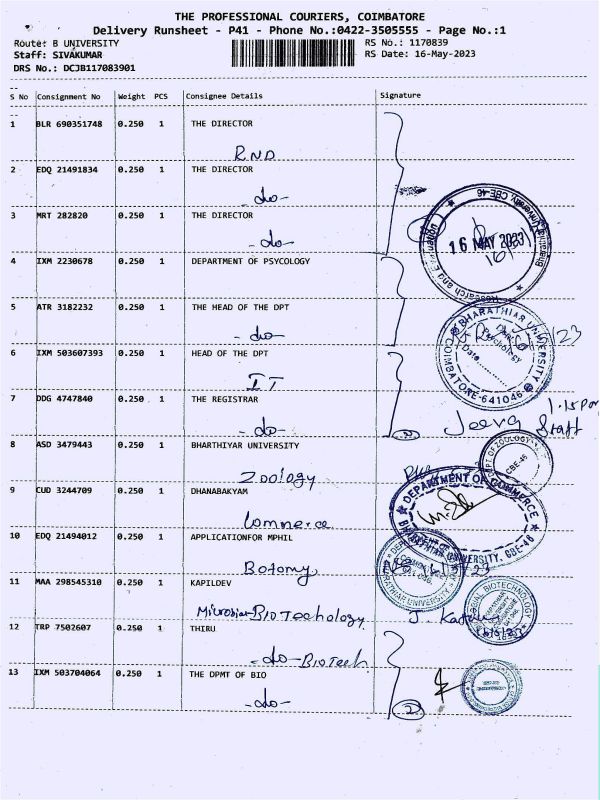 THE PROFESSIONAL COURIERS, COIMBATORE
Delivery Runsheet - P41 - Phone No.:0422-3505555 - Page No.:1
Route: B UNIVERSITY
RS No.: 1170839
Staff: SIVAKUMAR
RS Date: 16-May-2023
DRS No.: DCJB117083901
S No Consignment No Weight PCS Consignee Details Signature
1 BLR 690351748 0.250 1 THE DIRECTOR
RND
2 EDQ 21491834 0.250 1 THE DIRECTOR
-do-
3 MRT 282820 0.250 1 THE DIRECTOR
-do-
16 MAY 2023
4 IXM 2230678 0.250 1 DEPARTMENT OF PSYCOLOGY
5 ATR 3182232 0.250 1 THE HEAD OF THE DPT
-do-
BHARATHIAR UNIVERSITY
COIMBATORE-641046
6 IXM 503607393 0.250 1 HEAD OF THE DPT
IT
7 DDG 4747840 0.250 1 THE REGISTRAR
-do-
Jeeva
Staff
8 ASD 3479443 0.250 1 BHARTHIYAR UNIVERSITY
Zoology
9 CUD 3244709 0.250 1 DHANABAKYAM
Commerce
DEPARTMENT OF COMMERCE
10 EDQ 21494012 0.250 1 APPLICATIONFOR MPHIL
Botomy
11 MAA 298545310 0.250 1 KAPILDEV
Microbian BIO Techology
12 TRP 7502607 0.250 1 THIRU
-do- BioTech
13 IXM 503704064 0.250 1 THE DPMT OF BIO
-do-